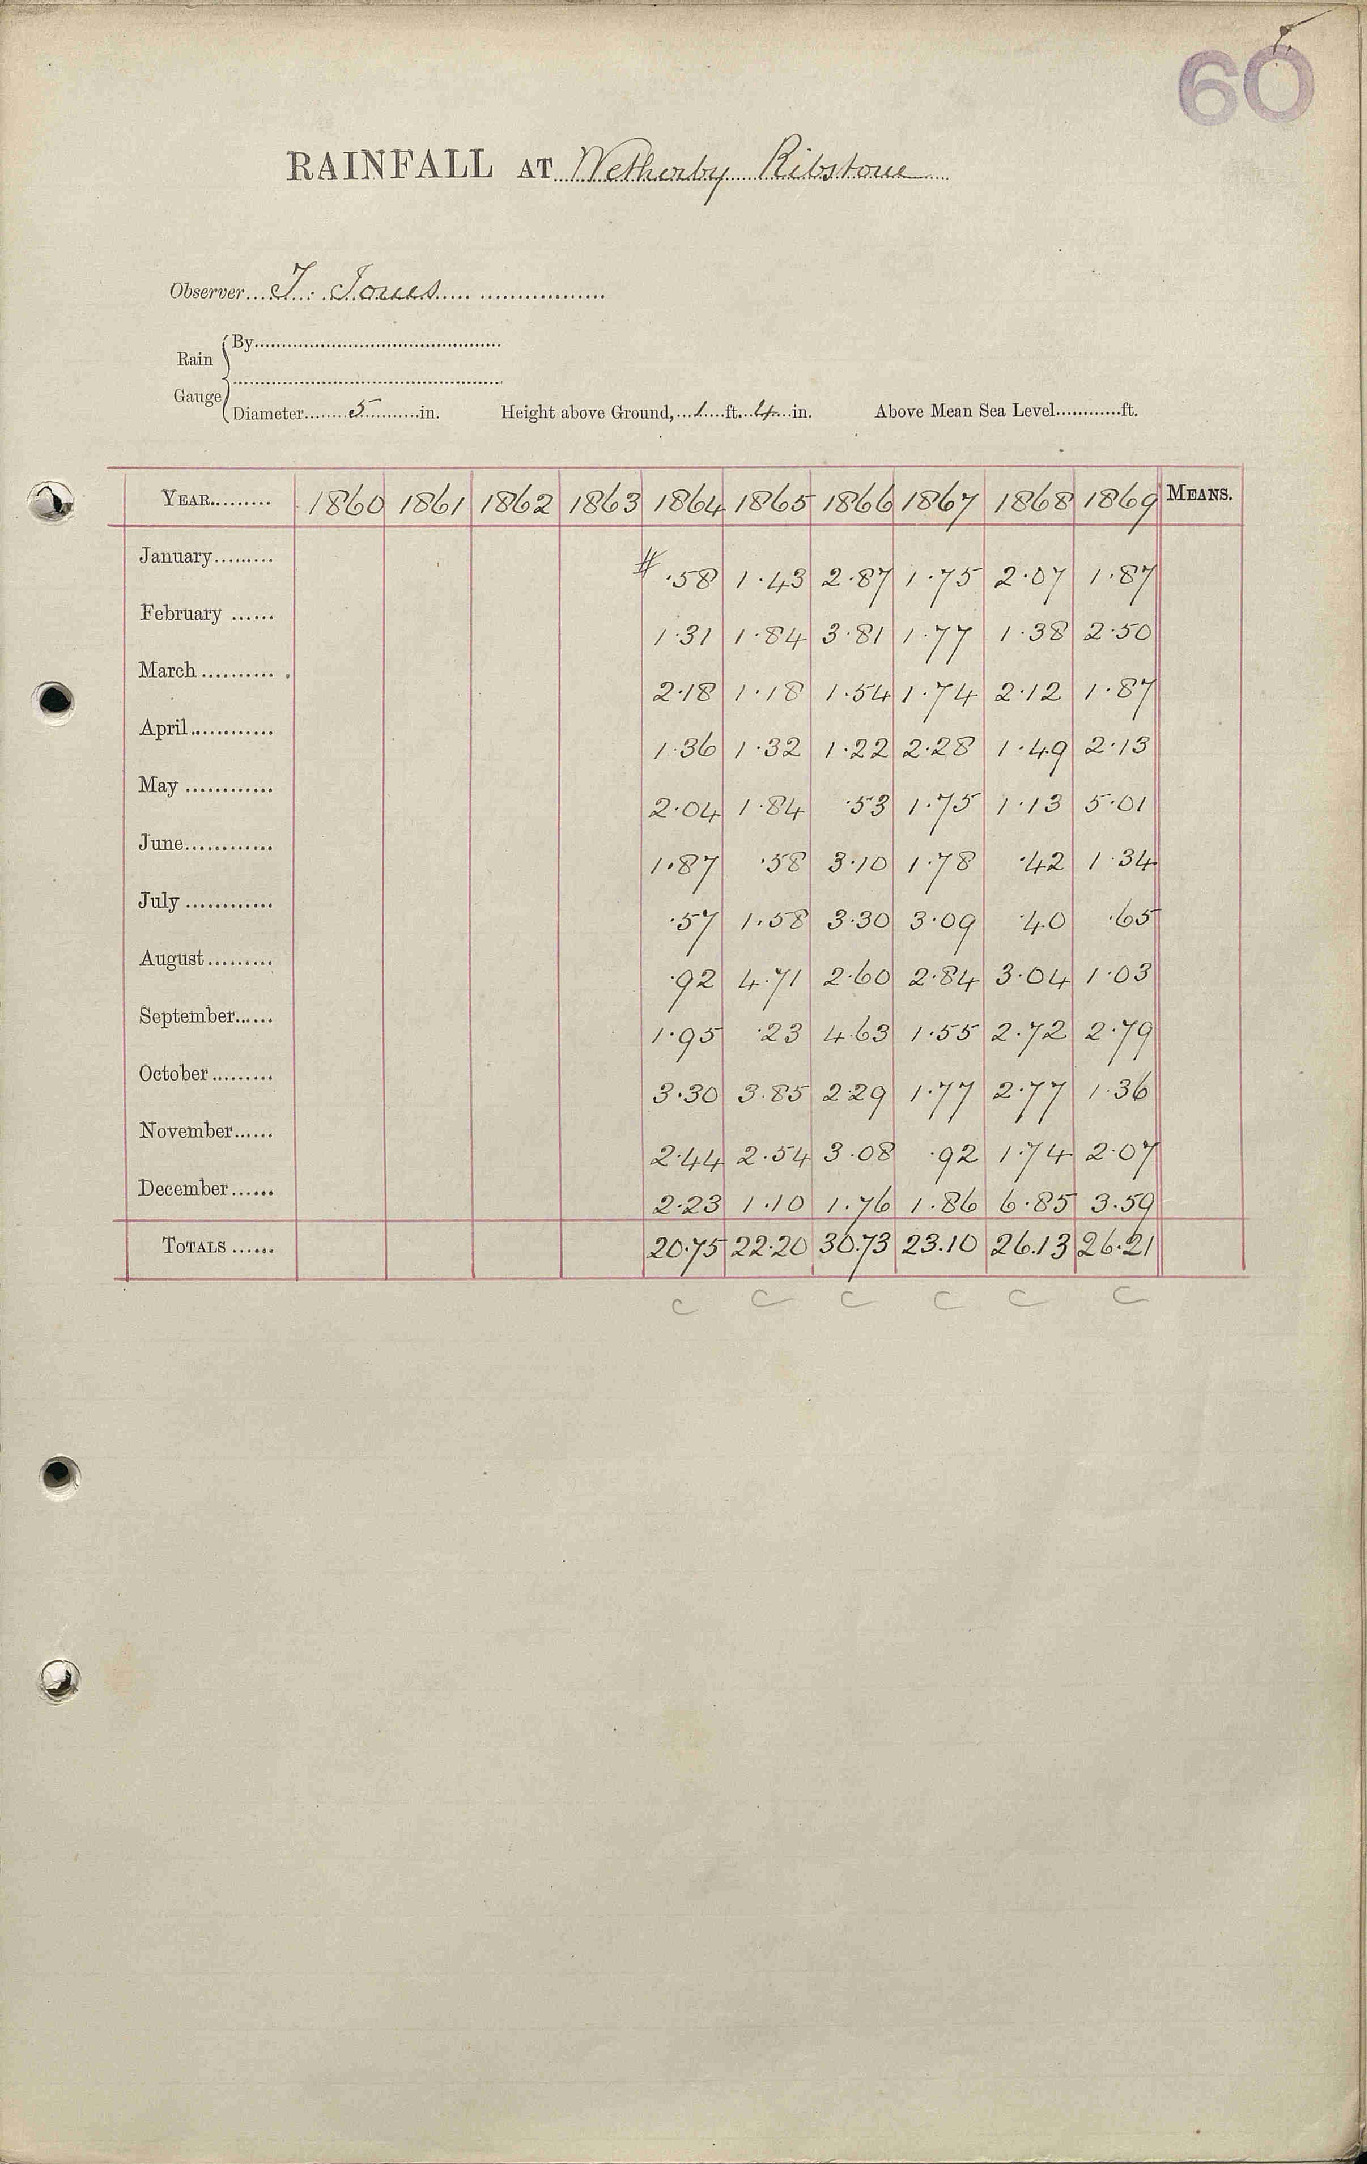 60
RAINFALL AT Wetherby Ribstone
Observer T. Jones
Rain Gauge
By
Diameter 5 in. Height above Ground, 1 ft. 4 in. Above Mean Sea Level ft.
YEAR 1860 1861 1862 1863 1864 1865 1866 1867 1868 1869 MEANS.
January # .58 1.43 2.87 1.75 2.07 1.87
February 1.31 1.84 3.81 1.77 1.38 2.50
March 2.18 1.18 1.54 1.74 2.12 1.87
April 1.36 1.32 1.22 2.28 1.49 2.13
May 2.04 1.84 .53 1.75 1.13 5.01
June 1.87 .58 3.10 1.78 .42 1.34
July .57 1.58 3.30 3.09 .40 .65
August .92 4.71 2.60 2.84 3.04 1.03
September 1.95 .23 4.63 1.55 2.72 2.79
October 3.30 3.85 2.29 1.77 2.77 1.36
November 2.44 2.54 3.08 .92 1.74 2.07
December 2.23 1.10 1.76 1.86 6.85 3.59
TOTALS 20.75 22.20 30.73 23.10 26.13 26.21
C C C C C C